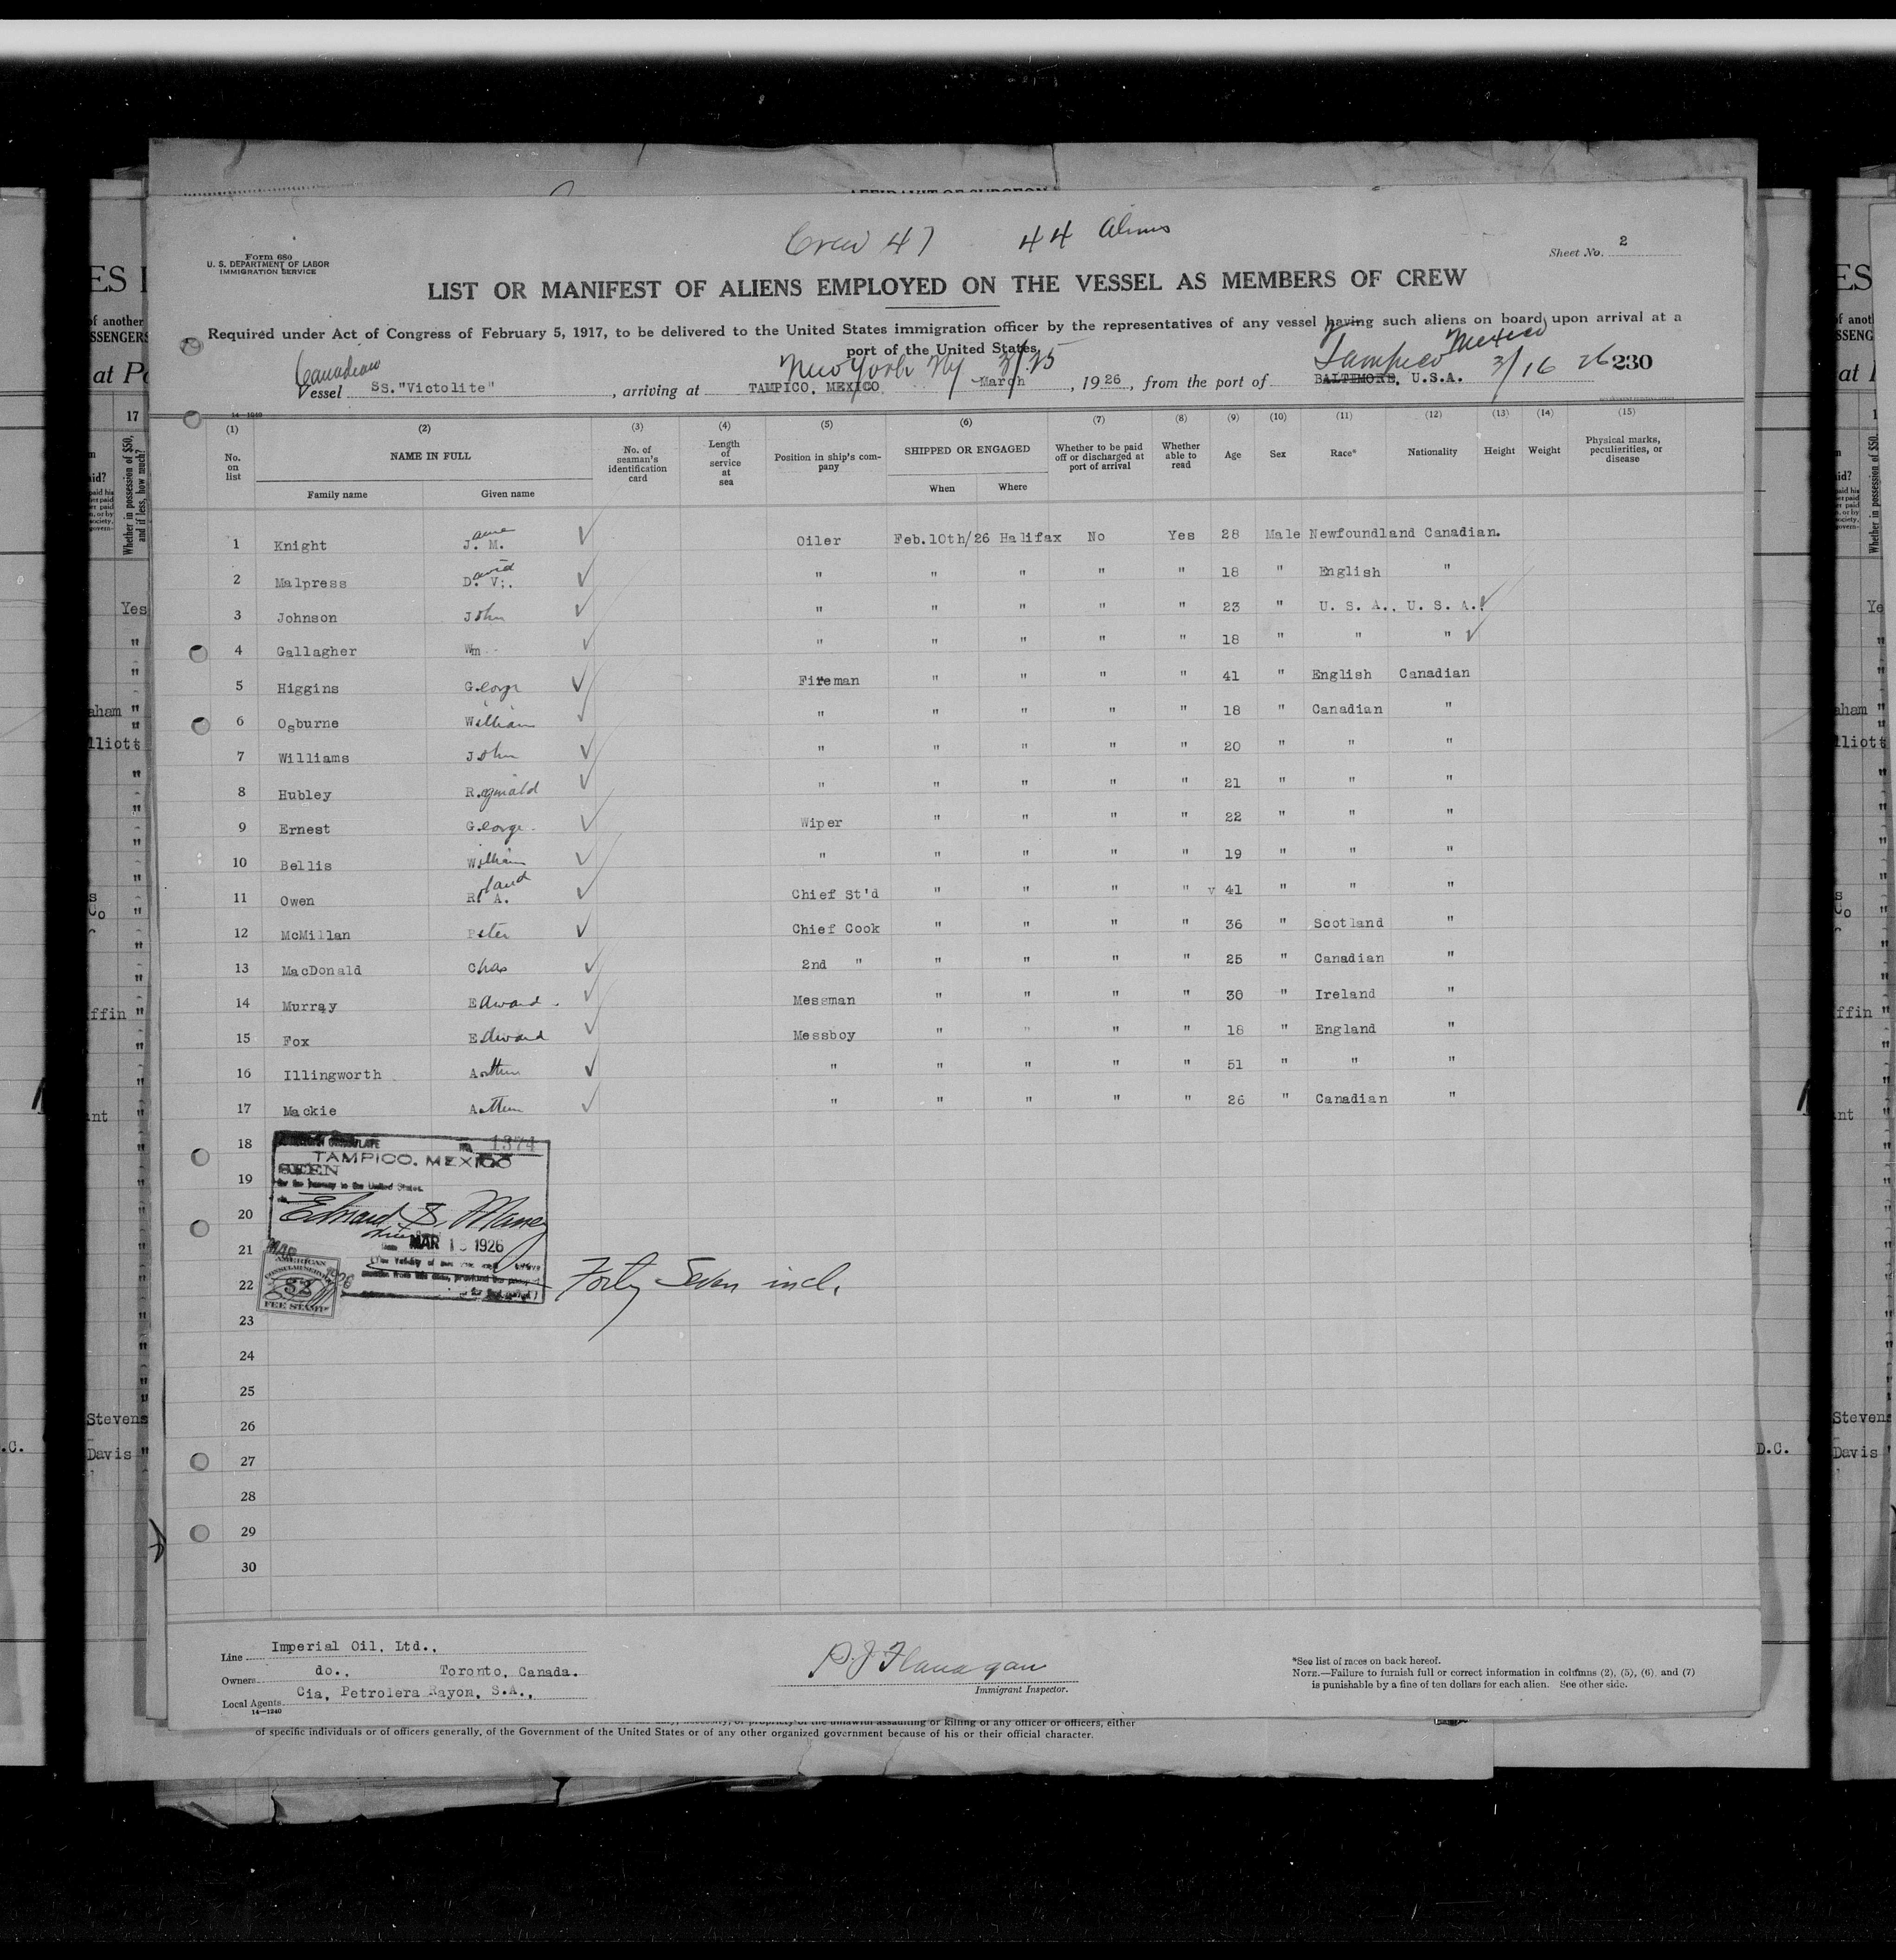 Crew 47 44 Aliens
Form 680
U. S. DEPARTMENT OF LABOR
IMMIGRATION SERVICE
Sheet No. 2
LIST OR MANIFEST OF ALIENS EMPLOYED ON THE VESSEL AS MEMBERS OF CREW
Required under Act of Congress of February 5, 1917, to be delivered to the United States immigration officer by the representatives of any vessel having such aliens on board upon arrival at a
port of the United States
Canadian New York NY 3/25 Tampico Mexico 3/16 26 230
Vessel SS. "Victolite", arriving at TAMPICO, MEXICO March, 1926, from the port of BALTIMORE, U.S.A.
14—1240
(1) (2) (3) (4) (5) (6) (7) (8) (9) (10) (11) (12) (13) (14) (15)
No. on list NAME IN FULL No. of seaman's identification card Length of service at sea Position in ship's company SHIPPED OR ENGAGED Whether to be paid off or discharged at port of arrival Whether able to read Age Sex Race* Nationality Height Weight Physical marks, peculiarities, or disease
Family name Given name When Where
1 Knight J. M. ame Oiler Feb.10th/26 Halifax No Yes 28 Male Newfoundland Canadian.
2 Malpress D. V. avid " " " " " 18 " English "
3 Johnson John " " " " " 23 " U. S. A., U. S. A.
4 Gallagher Wm " " " " " 18 " " "
5 Higgins George Fireman " " " " 41 " English Canadian
6 Osburne William " " " " " 18 " Canadian "
7 Williams John " " " " " 20 " " "
8 Hubley Reginald " " " " " 21 " " "
9 Ernest George Wiper " " " " 22 " " "
10 Bellis William " " " " " 19 " " "
11 Owen R. A. oland Chief St'd " " " " v 41 " " "
12 McMillan Peter Chief Cook " " " " 36 " Scotland "
13 MacDonald Chas 2nd " " " " " 25 " Canadian "
14 Murray Edward Messman " " " " 30 " Ireland "
15 Fox Edward Messboy " " " " 18 " England "
16 Illingworth Arthur " " " " " 51 " " "
17 Mackie Arthur " " " " " 26 " Canadian "
18
19
20
21
22
23
24
25
26
27
28
29
30
No. 1374
TAMPICO, MEXICO
SEEN
For the journey to the United States.
Edward S. Maney
MAR 1 1926
AMERICAN
CONSULAR SERVICE
$2
FEE STAMP
Forty Seven incl.
Line Imperial Oil, Ltd.,
Owners do., Toronto, Canada.
Local Agents Cia, Petrolera Rayon, S.A.,
14—1240
P. J. Flanagan
Immigrant Inspector.
*See list of races on back hereof.
NOTE.—Failure to furnish full or correct information in columns (2), (5), (6), and (7)
is punishable by a fine of ten dollars for each alien. See other side.
of specific individuals or of officers generally, of the Government of the United States or of any other organized government because of his or their official character.